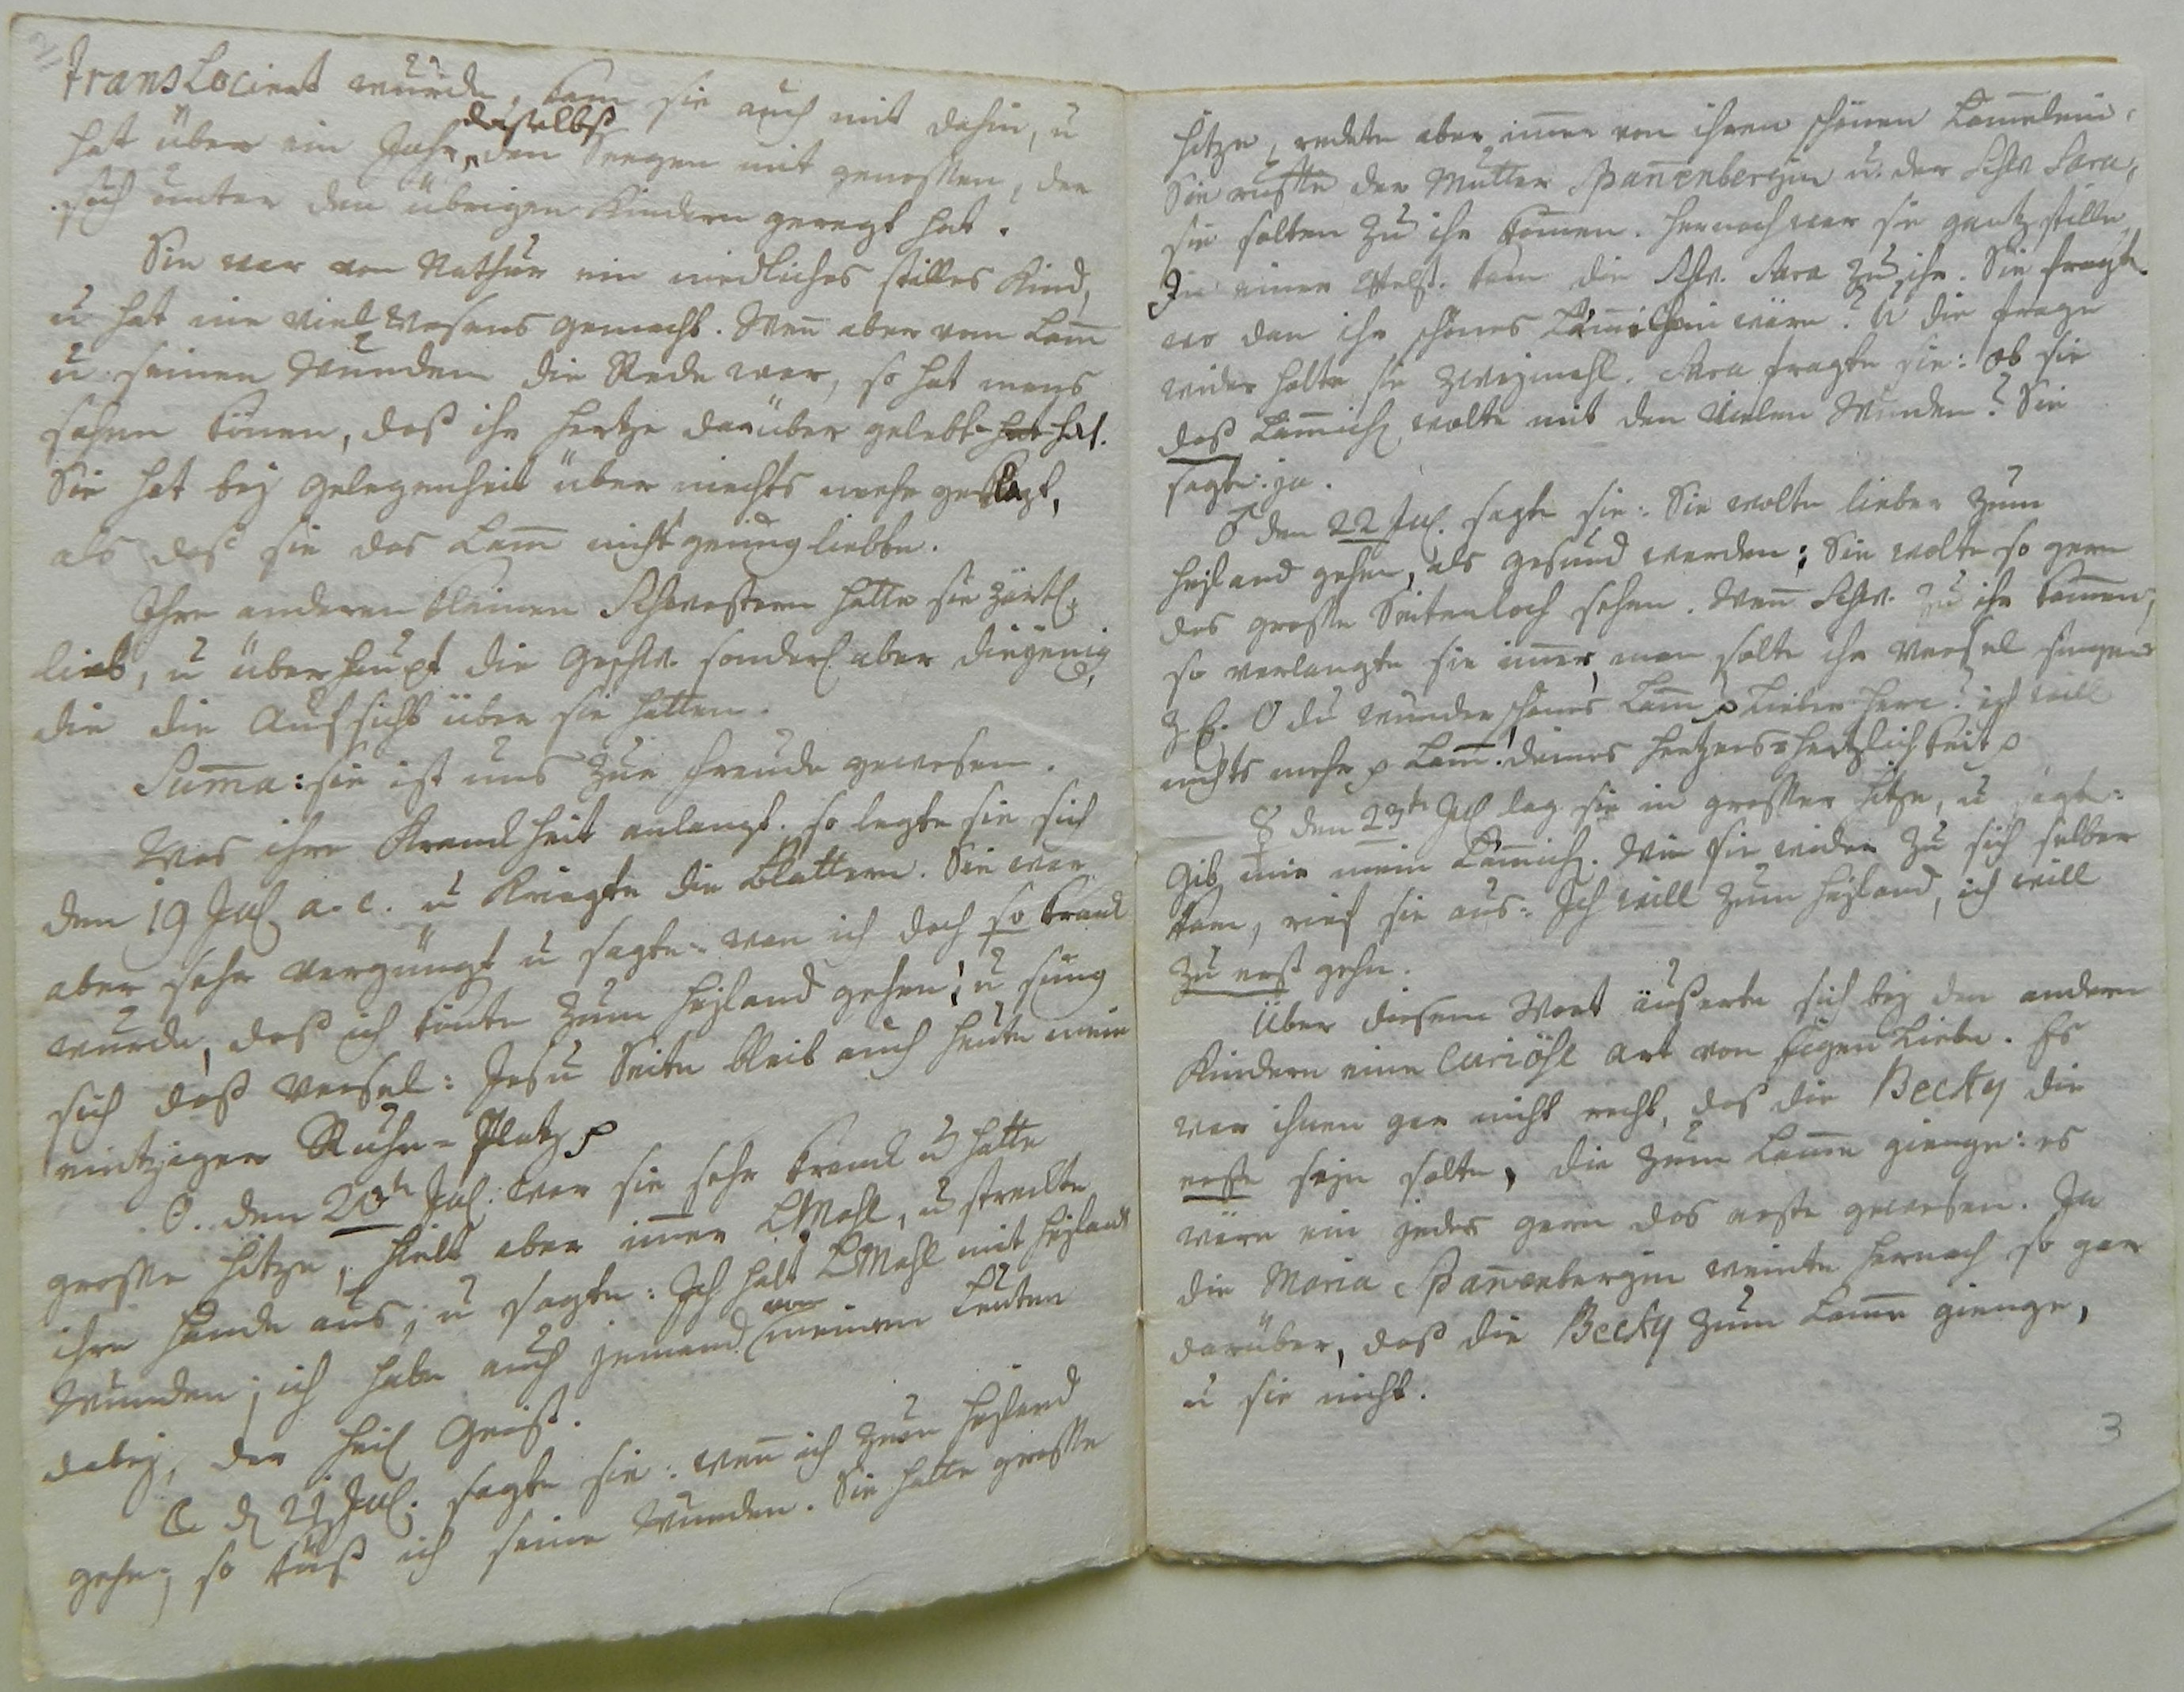 2
transLocirt wurde, kam sie auch mit dahin, u
hat über ein Jahr daselbst den Seegen mit genossen, der
sich unter den übrigen Kindern geregt hat.
Sie war von Nathur ein niedliches stilles Kind,
u hat nie viel Wesens gemacht. Wen̄ aber vom Lam̄
u seinen Wunden die Rede war, so hat mans
sehen kön̄en, daß ihr Hertze darüber gelebt hat.
Sie hat bey Gelegenheit über niechts mehr geklagt,
als daß sie das Lam̄ nicht genung liebte.
Ihre anderen kleinen Schwestern hatte sie zärtl.
lieb, u überhaupt die Geschw. sonderl. aber diejenig,
die die Aufsicht über sie hatten.
Sum̄a: sie ist uns zur Freude gewesen.
Was ihre Kranckheit anlangt. so legte sie sich
den 19 Jul. a. c. u kriegte die Blattern. Sie war
aber sehr vergnügt u sagte: wan ich doch so kranck
wurde, daß ich könte zum Heyland gehen! u sung
sich daß Versel: Jesu Seite bleib auch heute mein
eintziger Ruhe-Platz p
☉. den 20te Jul. war sie sehr kranck u hatte
grosse Hitze, hielt aber im̄er LMahl, u streckte
ihre Hände aus, u sagte: Ich halt LMahl mit Heylands
Wunden; ich habe auch jemand von meinen Leuten
dabey, der Heil Geist.
☾ d 21 Jul. sagte sie: wen̄ ich zum Heyland
gehe, so küß ich seine Wunden. Sie hatte grosse
Hitze, redete aber im̄er von ihren schönen Läm̄elein,
Sie ruffte der Mutter Span̄enbergin u. der Schw Sara,
sie solten zu ihr kom̄en. Hernach war sie gantz stille,
In einer Weil. kam die Schw. Sara zu ihr. Sie fragte
wo dan ihr schönes Läm̄elein wäre? U die frage
wider holte sie zweymahl. Sara fragte sie: ob sie
daß Läm̄ich wolte mit den vielen Wunden? Sie
sagte: ja.
♂ den 22 Jul. sagte sie: Sie wolte lieber zum
Heyland gehen, als gesund werden; Sie wolte so gern
das grosse Seitenloch sehen. Wen̄ Schw. zu ihr kamen,
so verlangte sie im̄er, man solte ihr Versel singen
z. E. O du wunder schönes Lam̄ p Lieber Herre! ich will
nichts mehr p Lam̄! deines Hertzens-Hertzlichkeit p
☿ den 23te Jul lag sie in grosser Hitze, u sagte:
Gib mir mein Läm̄ich. Wie sie wider zu sich selber
kam, rief sie aus: Ich will zum Heyland, ich will
zu erst gehn.
Über diesem Wort äußerte sich bey den andern
Kindern eine Curiöse Art von Eigen Liebe. Es
war ihnen gar nicht recht, daß die Becky die
erste seyn solte, die zum Lamm gienge: es
wäre ein jedes gern das erste gewesen. Ja
die Maria Span̄enbergin weinte hernach so gar
darüber, daß die Becky zum Lamm gienge,
u sie nicht.
3